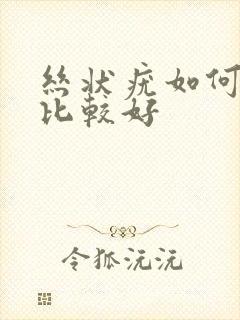 丝状疣如何
比较好
令狐沅沅